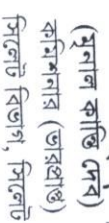 (মৃনাল কান্তি দেব)
কমিশনার (ভারপ্রাপ্ত)
সিলেট বিভাগ, সিলেট